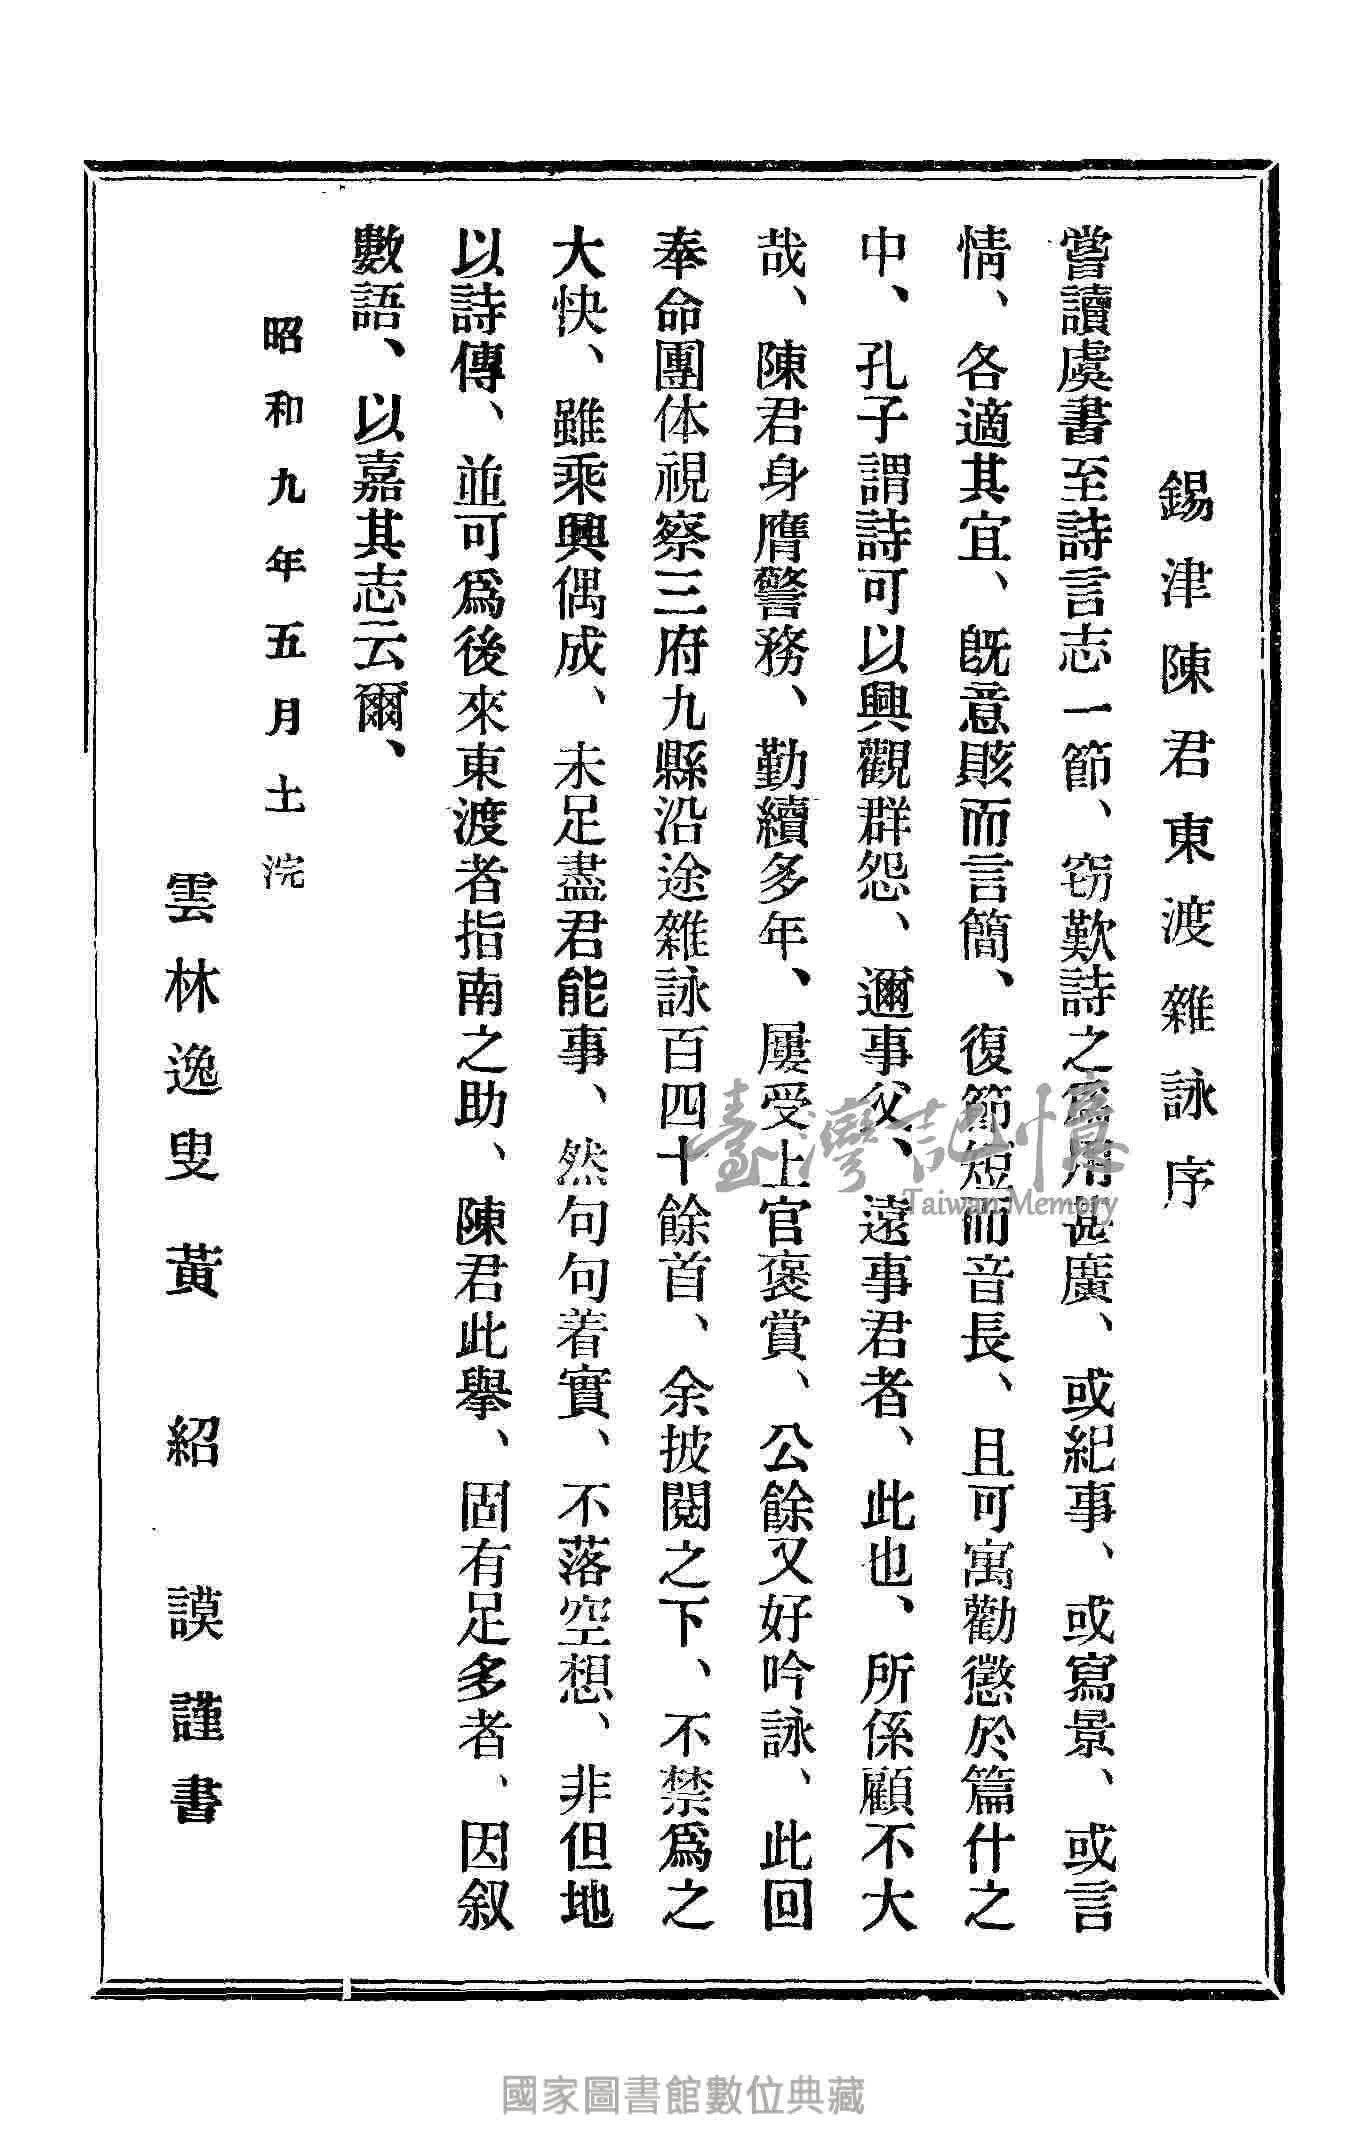 錫津陳君東渡雜詠序
嘗讀虞書至詩言志一節、窃歎詩之爲用甚廣、或紀事、或寫景、或言
情、各適其宜、既意賅而言簡、復節短而音長、且可寓勸懲於篇什之
中、孔子謂詩可以興觀群怨、邇事父、遠事君者、此也、所係顧不大
哉、陳君身膺警務、勤續多年、屢受上官褒賞、公餘又好吟詠、此回
奉命團体視察三府九縣沿途雜詠百四十餘首、余披閱之下、不禁爲之
大快、雖乘興偶成、未足盡君能事、然句句着實、不落空想、非但地
以詩傳、並可爲後來東渡者指南之助、陳君此舉、固有足多者、因叙
數語、以嘉其志云爾、
昭和九年五月土浣
雲林逸叟黃紹謨謹書
臺灣記憶
Taiwan Memory
國家圖書館數位典藏